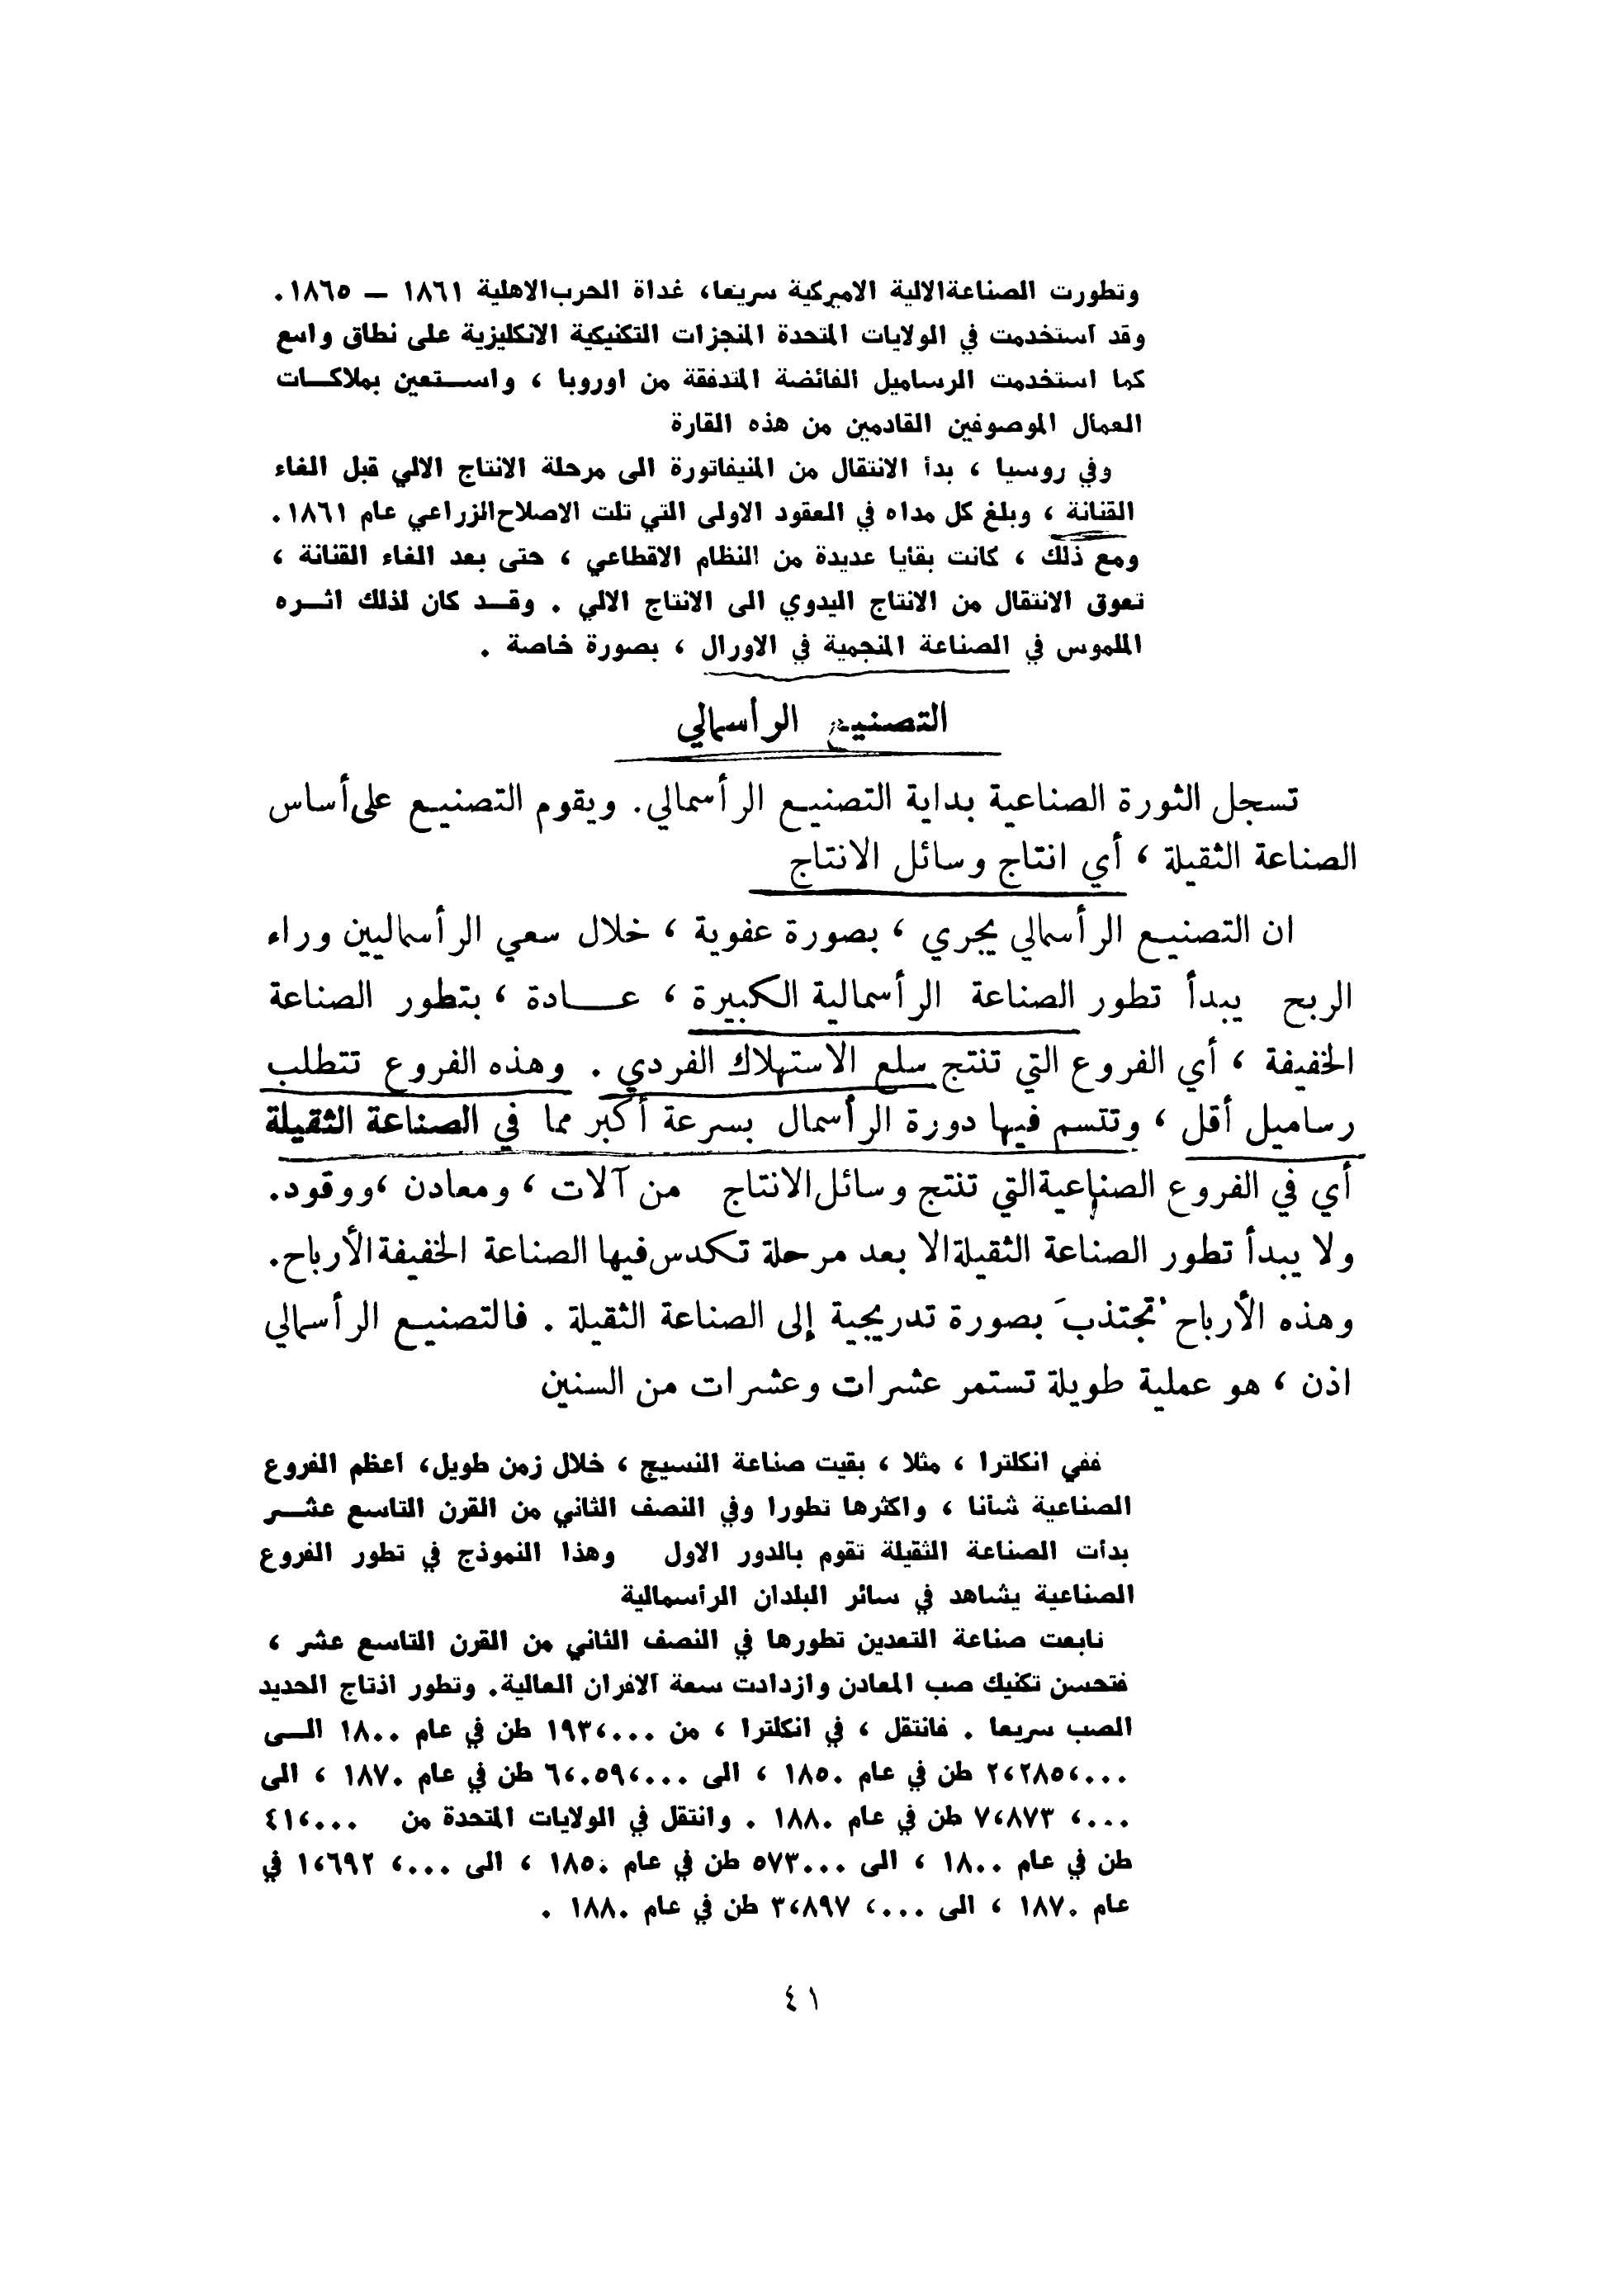 وتطورت الصناعة الالية الاميركية سريعا، غداة الحرب الاهلية ١٨٦١ – ١٨٦٥.
وقد استخدمت في الولايات المتحدة المنجزات التكنيكية الانكليزية على نطاق واسع
كما استخدمت الرساميل الفائضة المتدفقة من اوروبا ، واستعين بملاكات
العمال الموصوفين القادمين من هذه القارة
وفي روسيا ، بدأ الانتقال من المنيفاتورة الى مرحلة الانتاج الالي قبل الغاء
القنانة ، وبلغ كل مداه في العقود الاولى التي تلت الاصلاح الزراعي عام ١٨٦١.
ومع ذلك ، كانت بقايا عديدة من النظام الاقطاعي ، حتى بعد الغاء القنانة ،
تعوق الانتقال من الانتاج اليدوي الى الانتاج الالي . وقد كان لذلك اثره
الملموس في الصناعة المنجمية في الاورال ، بصورة خاصة .
التصنيع الرأسمالي
تسجل الثورة الصناعية بداية التصنيع الرأسمالي. ويقوم التصنيع على أساس
الصناعة الثقيلة ، أي انتاج وسائل الانتاج
ان التصنيع الرأسمالي يجري ، بصورة عفوية ، خلال سعي الرأسماليين وراء
الربح يبدأ تطور الصناعة الرأسمالية الكبيرة ، عادة ، بتطور الصناعة
الخفيفة ، أي الفروع التي تنتج سلع الاستهلاك الفردي . وهذه الفروع تتطلب
رساميل أقل ، وتتسم فيها دورة الرأسمال بسرعة أكبر مما في الصناعة الثقيلة
أي في الفروع الصناعية التي تنتج وسائل الانتاج من آلات ، ومعادن ، ووقود.
ولا يبدأ تطور الصناعة الثقيلة الا بعد مرحلة تكدس فيها الصناعة الخفيفة الأرباح.
وهذه الأرباح تُجتذَب بصورة تدريجية إلى الصناعة الثقيلة . فالتصنيع الرأسمالي
اذن ، هو عملية طويلة تستمر عشرات وعشرات من السنين
ففي انكلترا ، مثلا ، بقيت صناعة النسيج ، خلال زمن طويل، اعظم الفروع
الصناعية شأنا ، واكثرها تطورا وفي النصف الثاني من القرن التاسع عشر
بدأت الصناعة الثقيلة تقوم بالدور الاول وهذا النموذج في تطور الفروع
الصناعية يشاهد في سائر البلدان الرأسمالية
تابعت صناعة التعدين تطورها في النصف الثاني من القرن التاسع عشر ،
فتحسن تكنيك صب المعادن وازدادت سعة الافران العالية. وتطور انتاج الحديد
الصب سريعا . فانتقل ، في انكلترا ، من ١٩٣،٠٠٠ طن في عام ١٨٠٠ الى
٢،٢٨٥،٠٠٠ طن في عام ١٨٥٠ ، الى ٦،٠٥٩،٠٠٠ طن في عام ١٨٧٠ ، الى
٧،٨٧٣ ،٠٠٠ طن في عام ١٨٨٠ . وانتقل في الولايات المتحدة من ٤١،٠٠٠
طن في عام ١٨٠٠ ، الى ٥٧٣٠٠٠ طن في عام ١٨٥٠ ، الى ١،٦٩٢ ،٠٠٠ في
عام ١٨٧٠ ، الى ٣،٨٩٧ ،٠٠٠ طن في عام ١٨٨٠ .
٤١